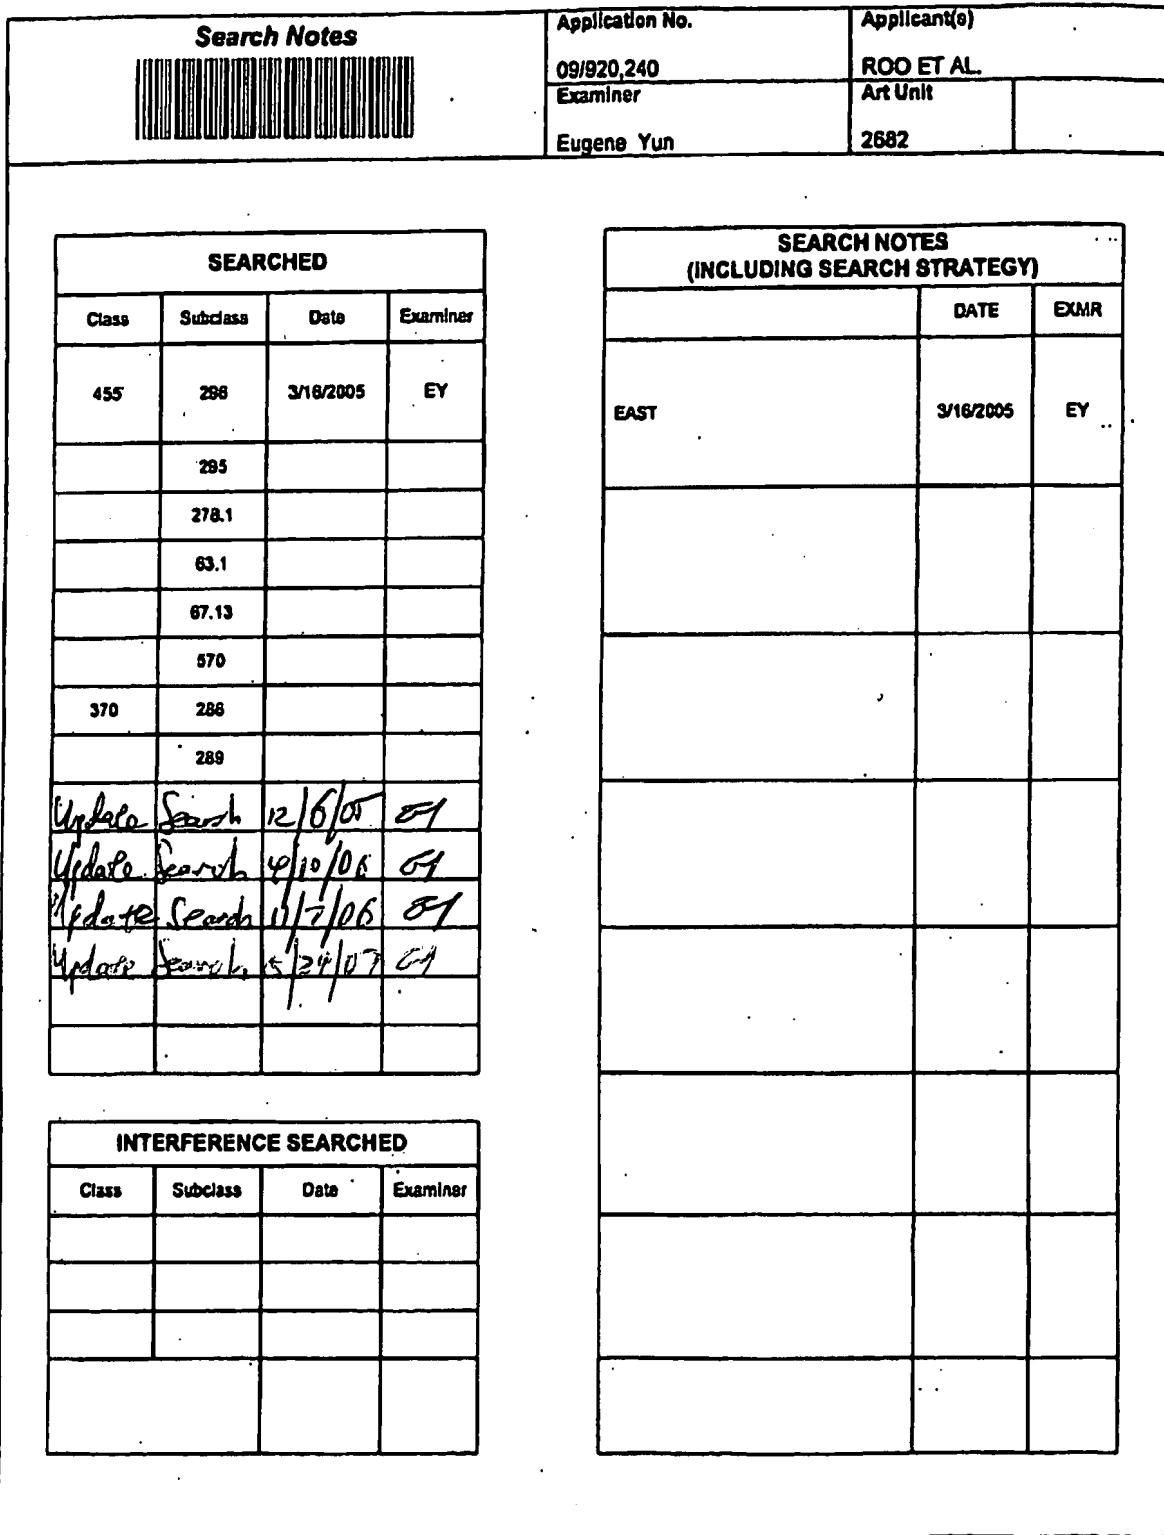 Search Notes
Application No.
09/920,240
Applicant(s)
ROO ET AL.
Examiner
Eugene Yun
Art Unit
2682
SEARCHED
Class Subclass Date Examiner
455 296 3/16/2005 EY
295
278.1
63.1
67.13
570
370 286
289
Update Search 12/6/05 EY
Update Search 4/10/06 EY
Update Search 11/7/06 EY
Update Search 5/24/07 EY
INTERFERENCE SEARCHED
Class Subclass Date Examiner
SEARCH NOTES
(INCLUDING SEARCH STRATEGY)
DATE EXMR
EAST 3/16/2005 EY